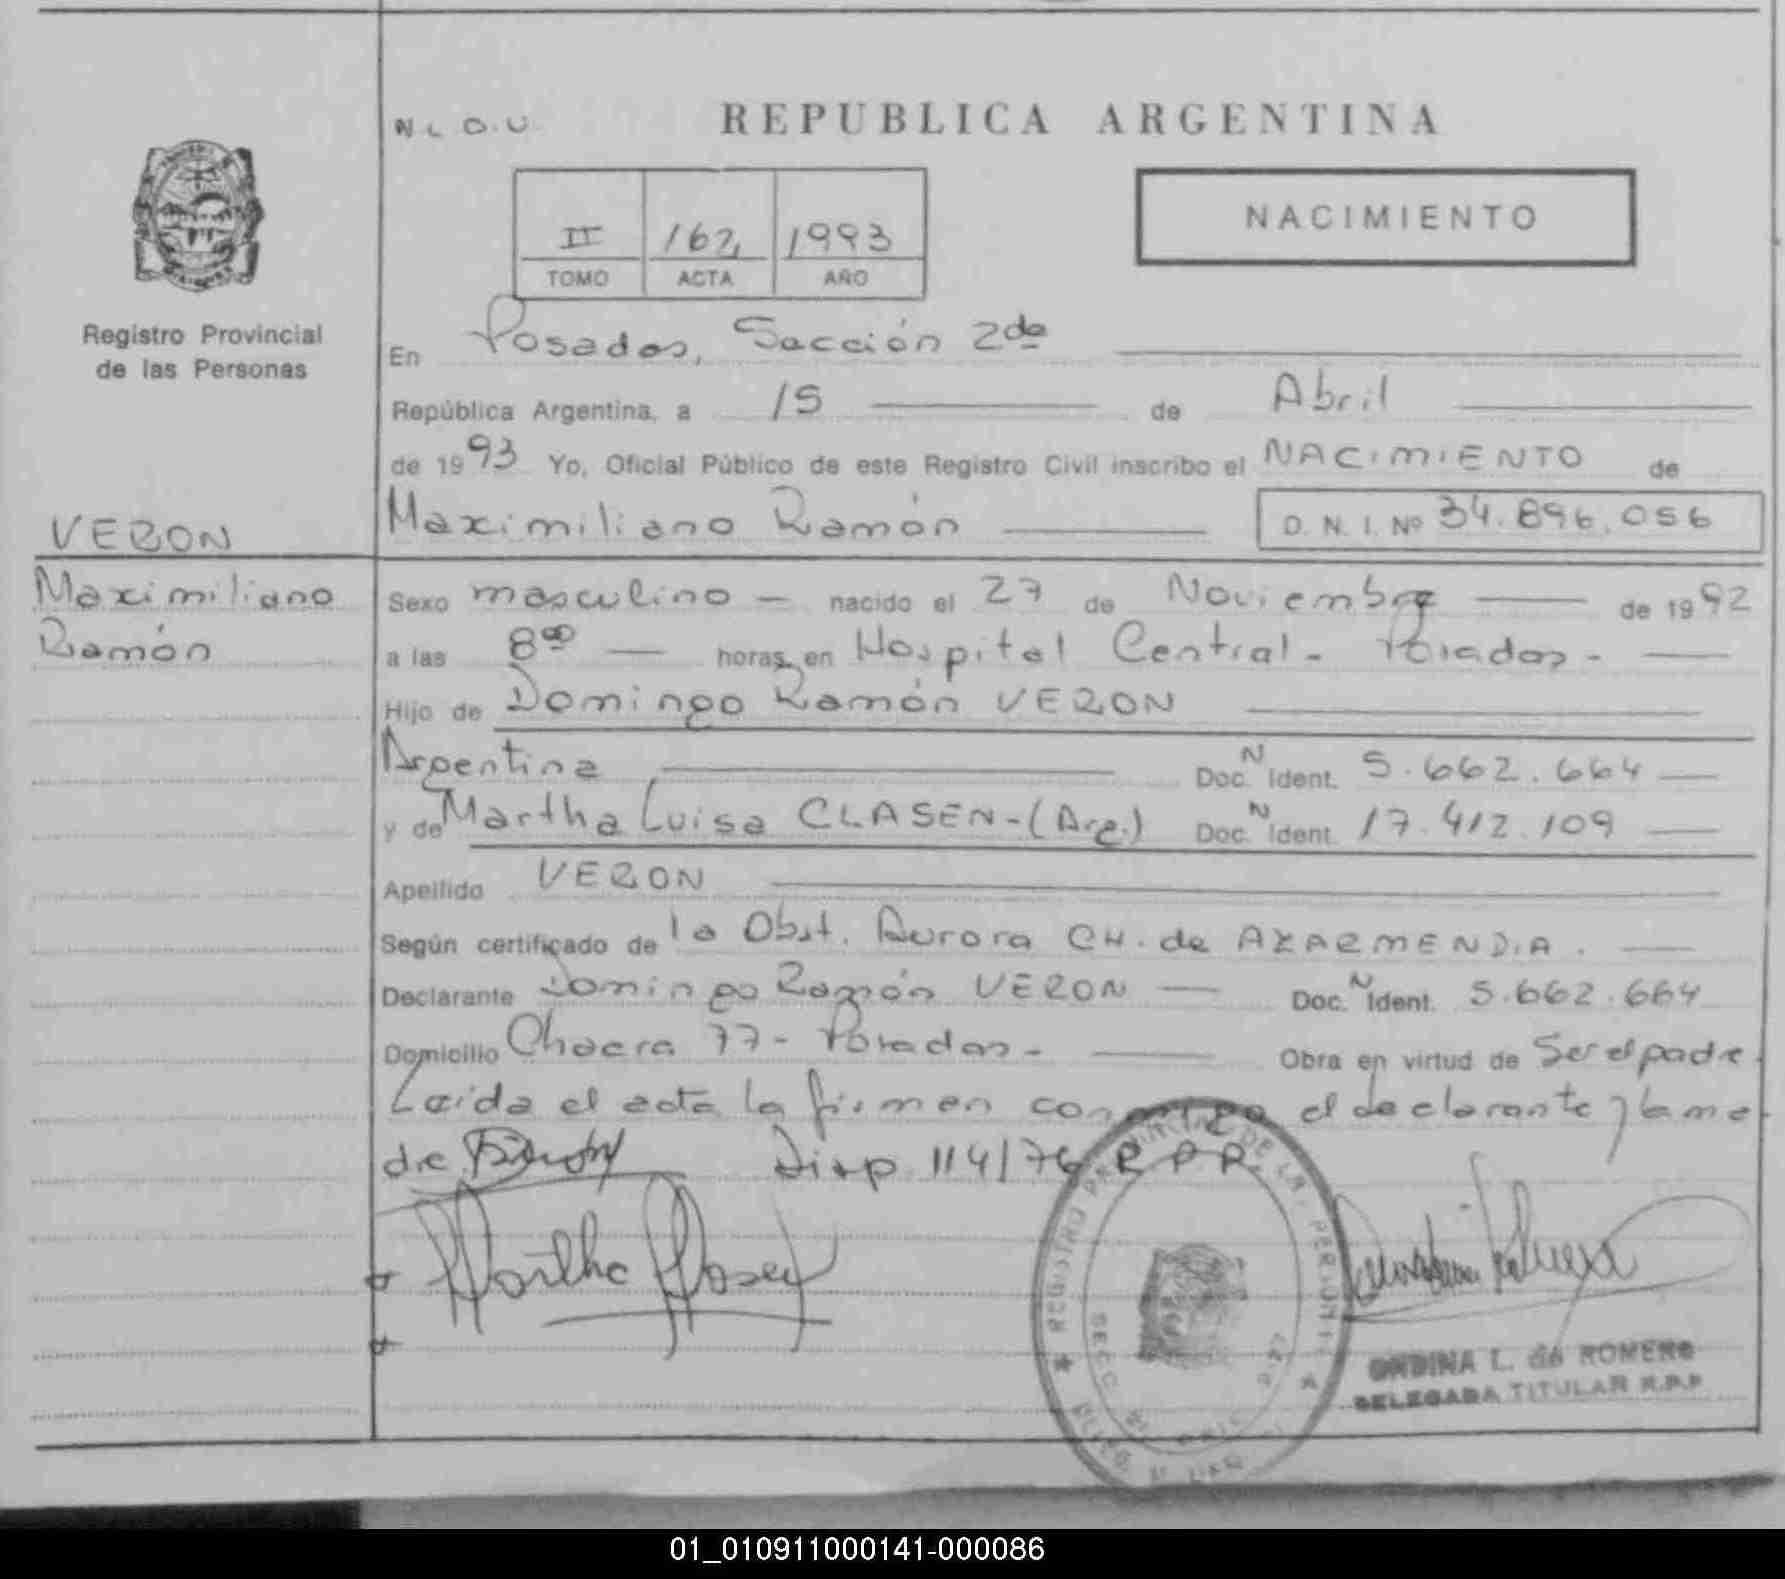 N L O. U.
REPUBLICA ARGENTINA
II 162 1993
TOMO ACTA AÑO
NACIMIENTO
Registro Provincial
de las Personas
En Posadas, Sección 2da
República Argentina, a 15 de Abril
de 1993 Yo, Oficial Público de este Registro Civil inscribo el NACIMIENTO de
Maximiliano Ramón D. N. I. Nº 34.896.056
VERON
Maximiliano
Ramón
Sexo masculino nacido el 27 de Noviembre de 1992
a las 8 00 horas, en Hospital Central - Posadas -
Hijo de Domingo Ramón VERON
Argentina Doc. N Ident. 5.662.664
y de Martha Luisa CLASEN - (Arg.) Doc. N Ident. 17.412.109
Apellido VERON
Según certificado de la Obst. Aurora CH. de AZARMENDIA.
Declarante Domingo Ramón VERON Doc. N Ident. 5.662.664
Domicilio Chacra 77 - Posadas - Obra en virtud de Ser el padre
Leida el acta la firman conmigo el declarante y la ma
dre Disp 114/76 R P P.
Martha
REGISTRO PROVINCIAL DE LAS PERSONAS
ONDINA L. de ROMERO
DELEGADA TITULAR R.P.P
01_010911000141-000086